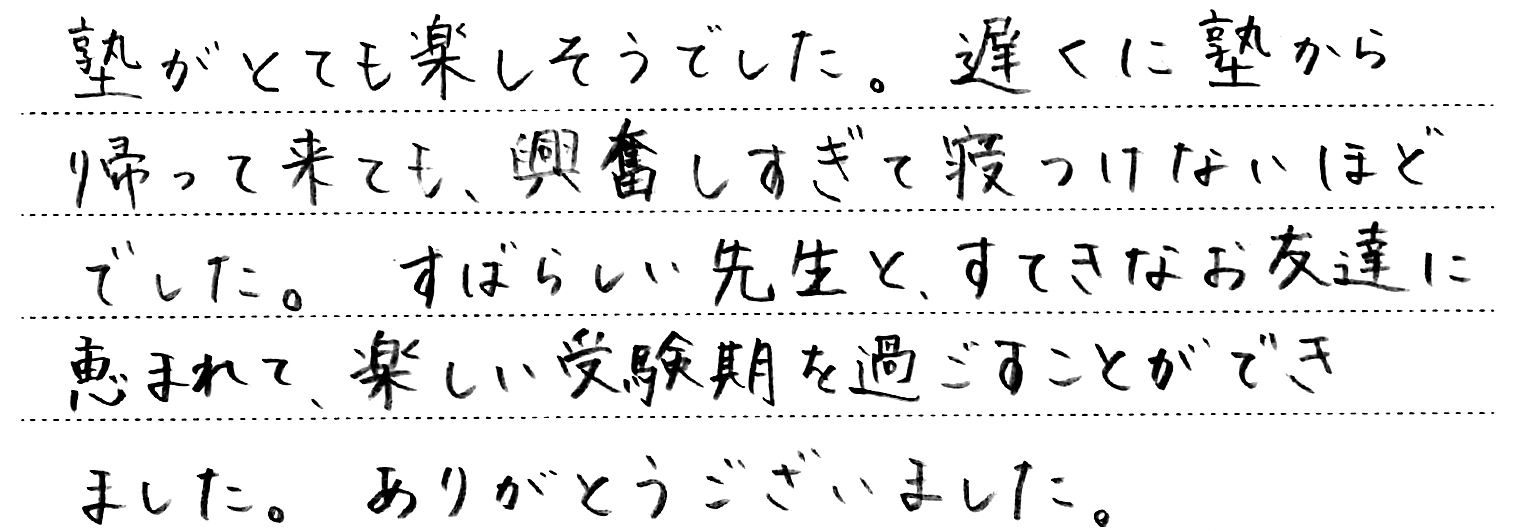 塾がとても楽しそうでした。遅くに塾から
帰って来ても、興奮しすぎて寝つけないほど
でした。すばらしい先生と、すてきなお友達に
恵まれて、楽しい受験期を過ごすことができ
ました。ありがとうございました。